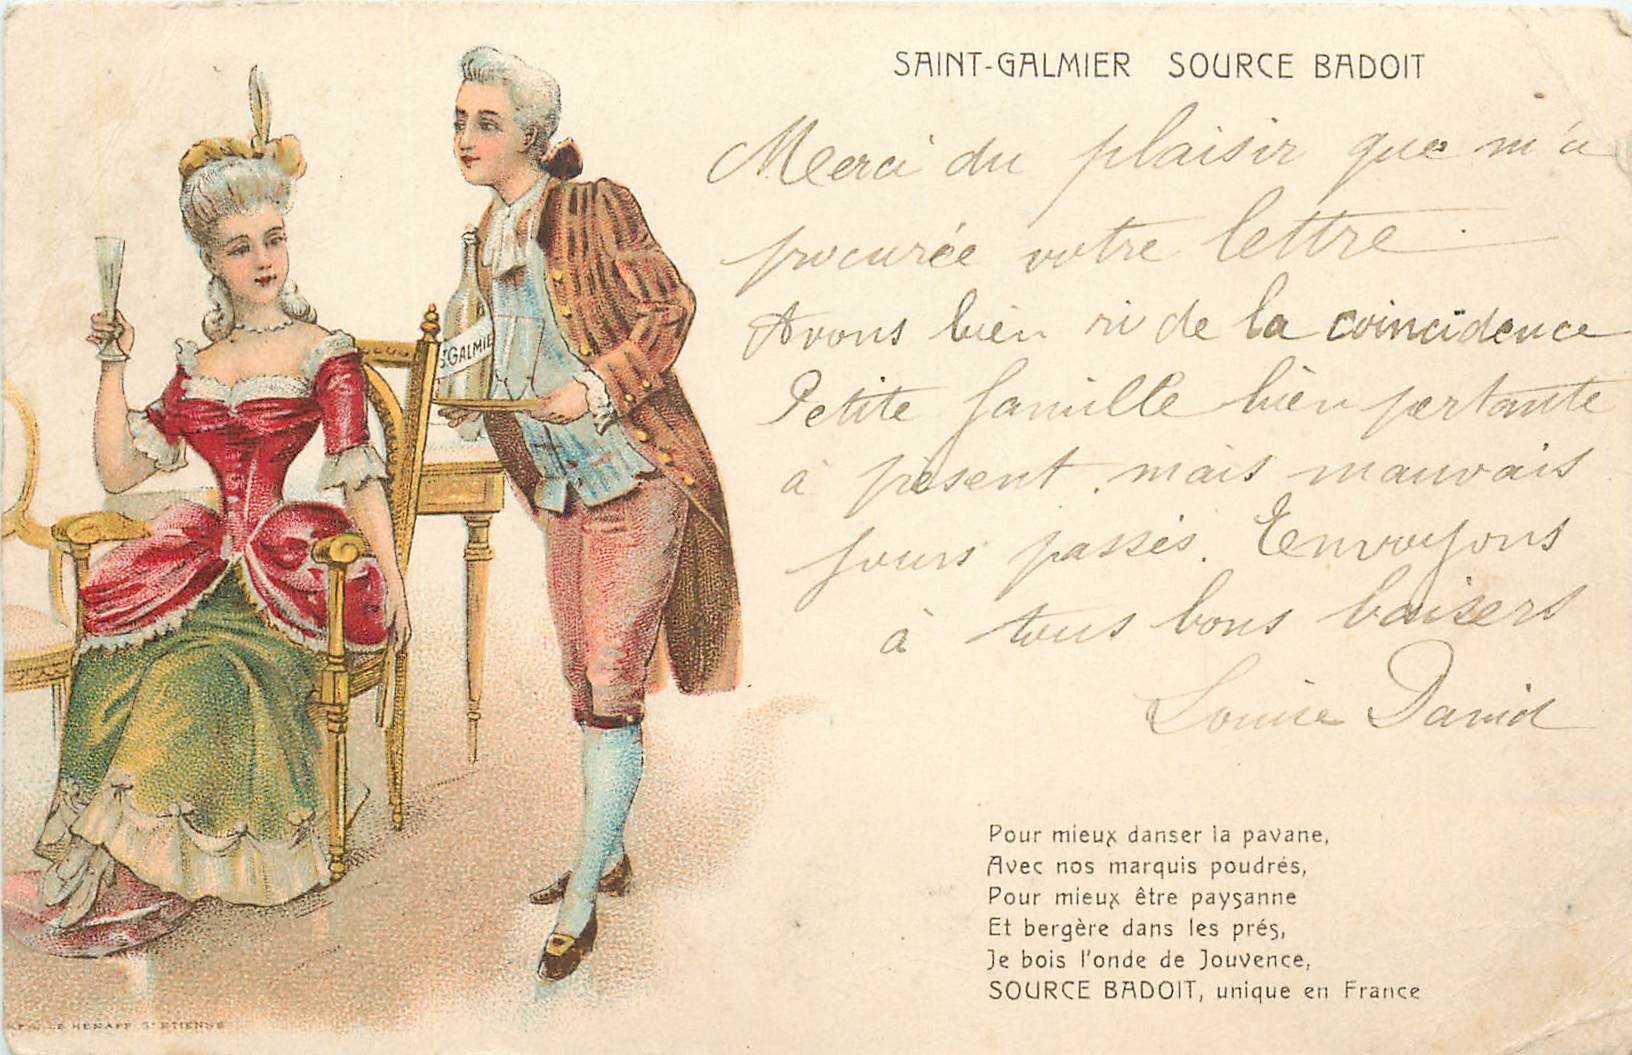 SAINT-GALMIER SOURCE BADOIT
Merci du plaisir que m'a
procurée votre lettre.
Avons bien ri de la coincidence
Petite famille bien portante
à présent, mais mauvais
jours passés. Envoyons
à tous bons baisers
Louise David
St GALMIE
Pour mieux danser la pavane,
Avec nos marquis poudrés,
Pour mieux être paysanne
Et bergère dans les prés,
Je bois l'onde de Jouvence,
SOURCE BADOIT, unique en France
LE HENAFF St ETIENNE